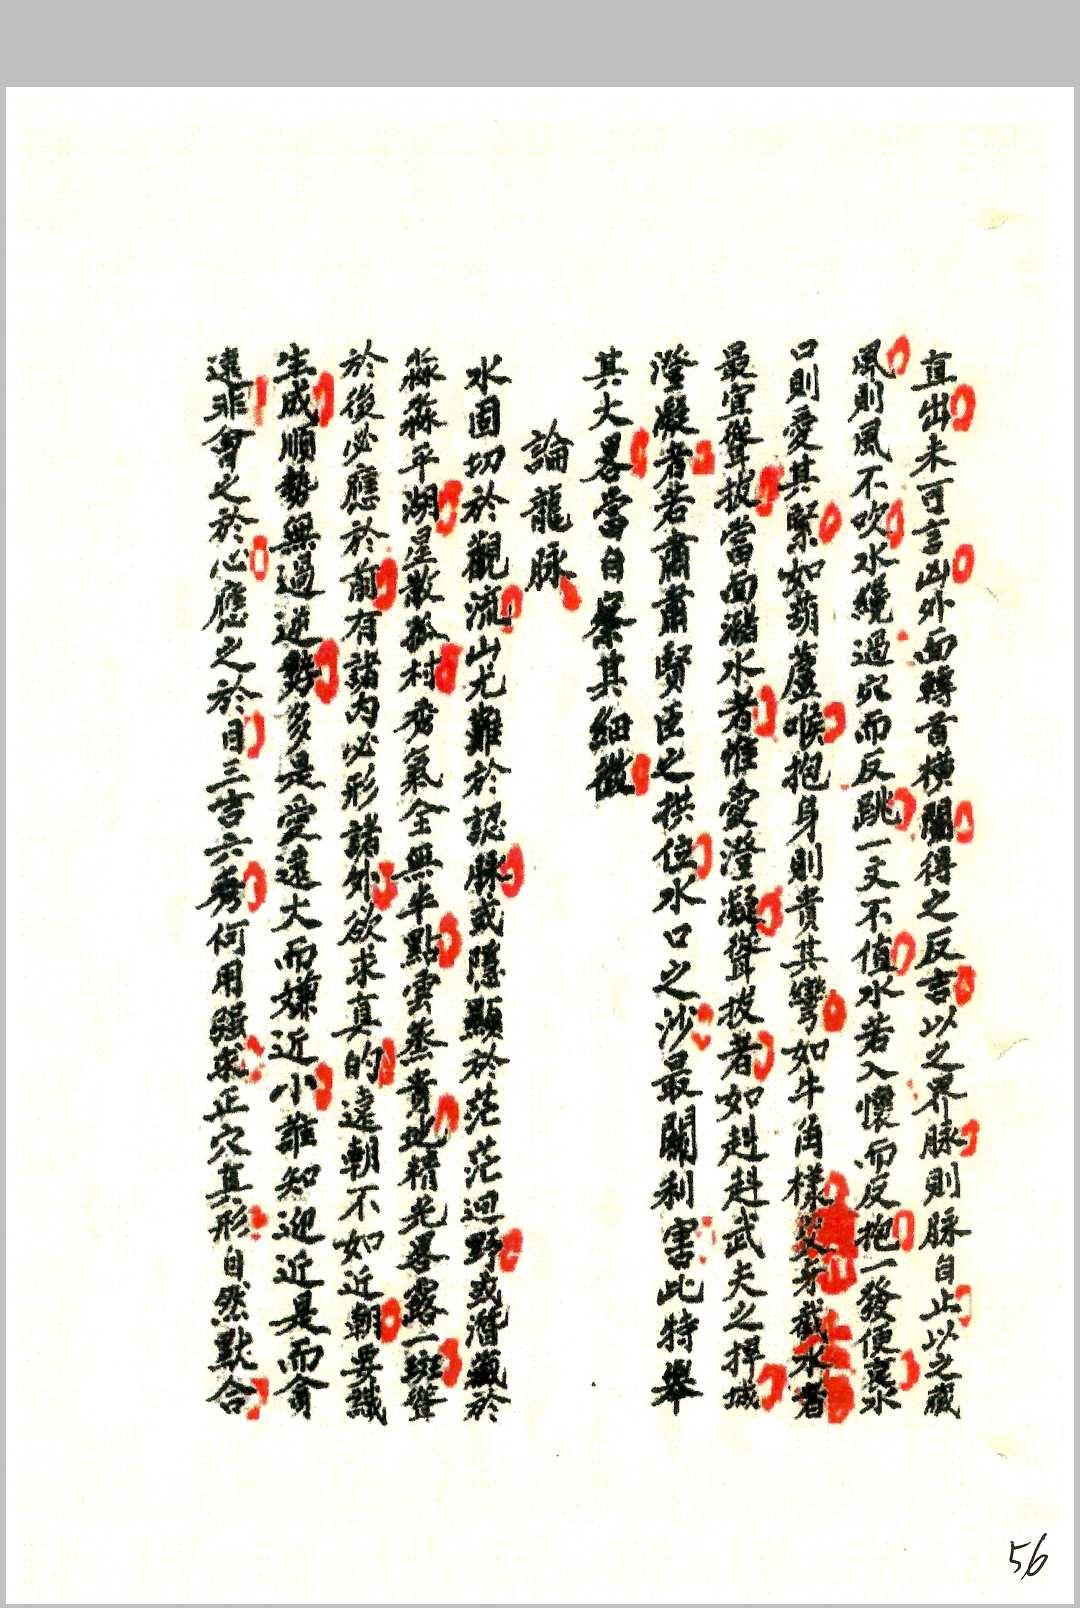 直出未可言凶外面轉首横闌得之反吉以之界脉則脉自止以之藏
風則風不吹水繞過穴而反跳一文不值水若入懷而反抱一發便衰水
口則愛其緊如葫蘆喉抱身則貴其彎如牛角樣交牙截水者
最宜聳拔當面瀦水者惟愛澄凝聳拔者如赳赳武夫之捍城
澄凝者若肅肅賢臣之拱位水口之沙最關利害此特舉
其大畧當自察其細微
論龍脉
水固切於觀流山尤難於認脉或隱顯於茫茫迥野或潛藏於
淼淼平湖星散孤村秀氣全無半點雲蒸膏地精光畧露一斑聳
於後必應於前有諸内必形諸外欲求真的遠朝不如近朝要識
生成順勢無過逆勢多是愛遠大而嫌近小誰知迎近是而貪
遠非會之於心應之於目三吉六秀何用强求正穴真形自然默合
56